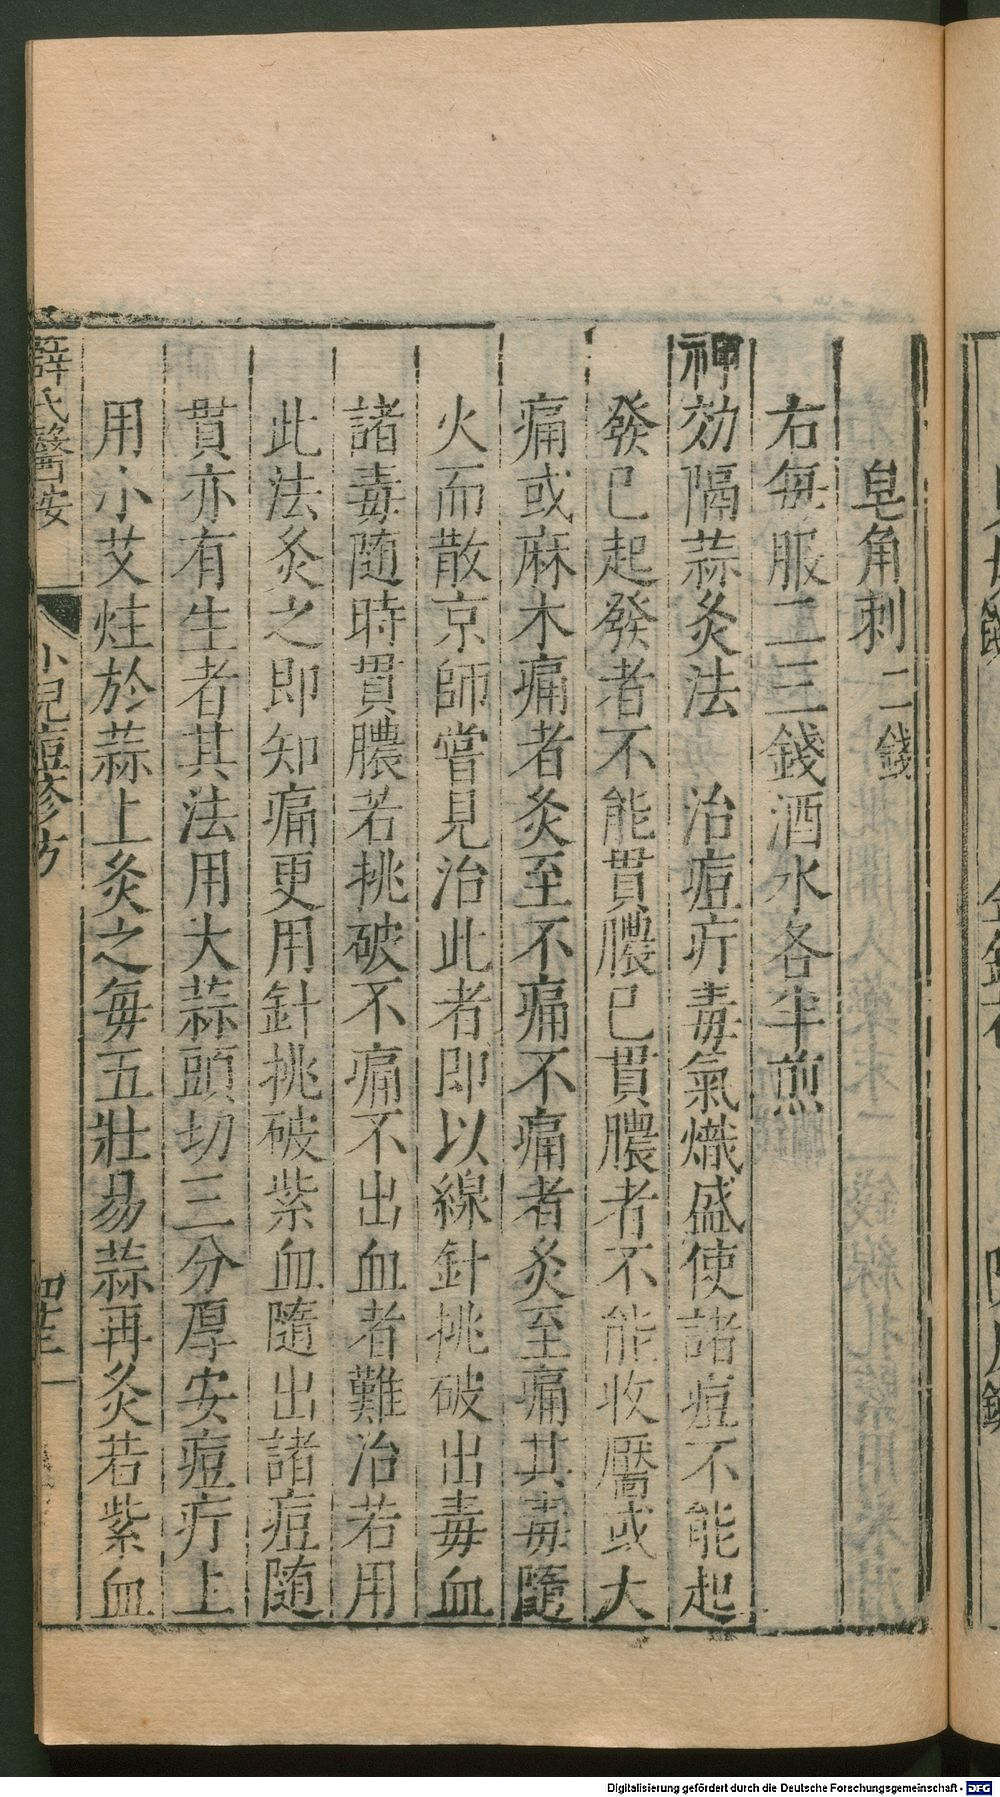 皂角刺二錢
右每服二三錢酒水各半煎
神効隔蒜灸法　治痘疔毒氣熾盛使諸痘不能起
發已起發者不能貫膿已貫膿者不能收靨或大
痛或麻木痛者灸至不痛不痛者灸至痛其毒隨
火而散京師嘗見治此者即以線針挑破出毒血
諸毒随時貫膿若挑破不痛不出血者難治若用
此法灸之即知痛更用針挑破紫血隨出諸痘随
貫亦有生者其法用大蒜頭切三分厚安痘疔上
用小艾炷於蒜上灸之每五壯易蒜再灸若紫血
薛氏醫按
小兒痘疹方
Digitalisierung gefördert durch die Deutsche Forschungsgemeinschaft - DFG